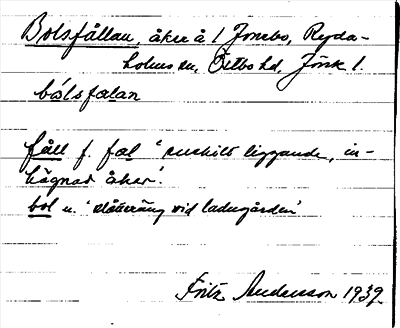 Bolsfållan, åker å 1 Jonsbo, Ryda-
holms sn, Östbo hd, Jönk l.
bólsfalan
fåll f. fal 'enskilt liggande, in-
hägnad åker'.
bol n. 'slåtteräng vid ladugården'
Fritz Andersson 1939